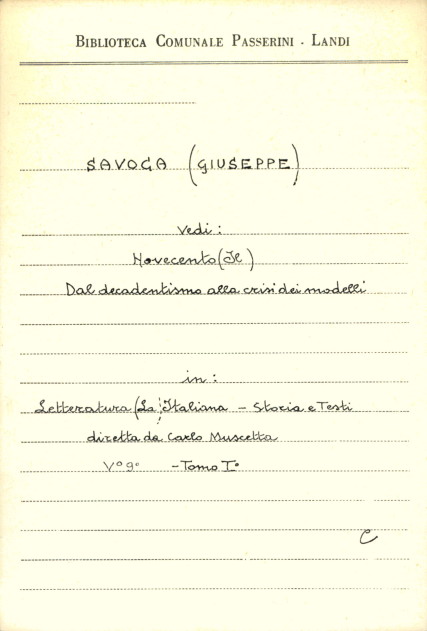 BIBLIOTECA COMUNALE PASSERINI - LANDI
SAVOCA (GIUSEPPE)
Vedi:
Novecento (Il)
Dal decadentismo alla crisi dei modelli
in:
Letteratura (La) Italiana - Storia e Testi
diretta da Carlo Muscetta
V° 9° - Tomo I°
C